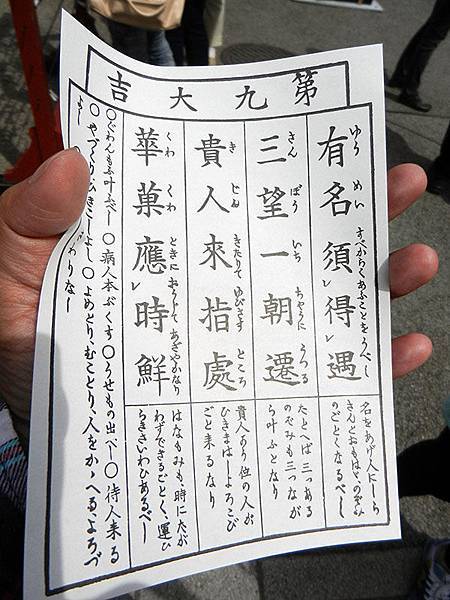 第九大吉
有名須レ得レ遇
ゆう めい すべからくあふことをうべし
名をあげ人にしら
きんとおもはゞのぞみ
のごとくなるべし
三望一朝遷
さん ぼう いち ちやうに うつる
たとへば三つある
のぞみも三つなが
ら叶ふとなり
貴人來指處
き じん きたりて ゆびさす ところ
貴人より位の人が
ひきまはしよろこび
ごと来るなり
華菓應レ時鮮
くわ くわ ときにおうじて あざやかなり
はなもみも、時にたが
わずできるごとく、運ひ
らきさいわひあるべし
○ぐわんもふ叶ふべし ○病人本ぶくす ○うせもの出べし ○待人来る
○やづくりひきこしよし ○よめとり、むことり、人をかゝへるよろづ
よし わりなし